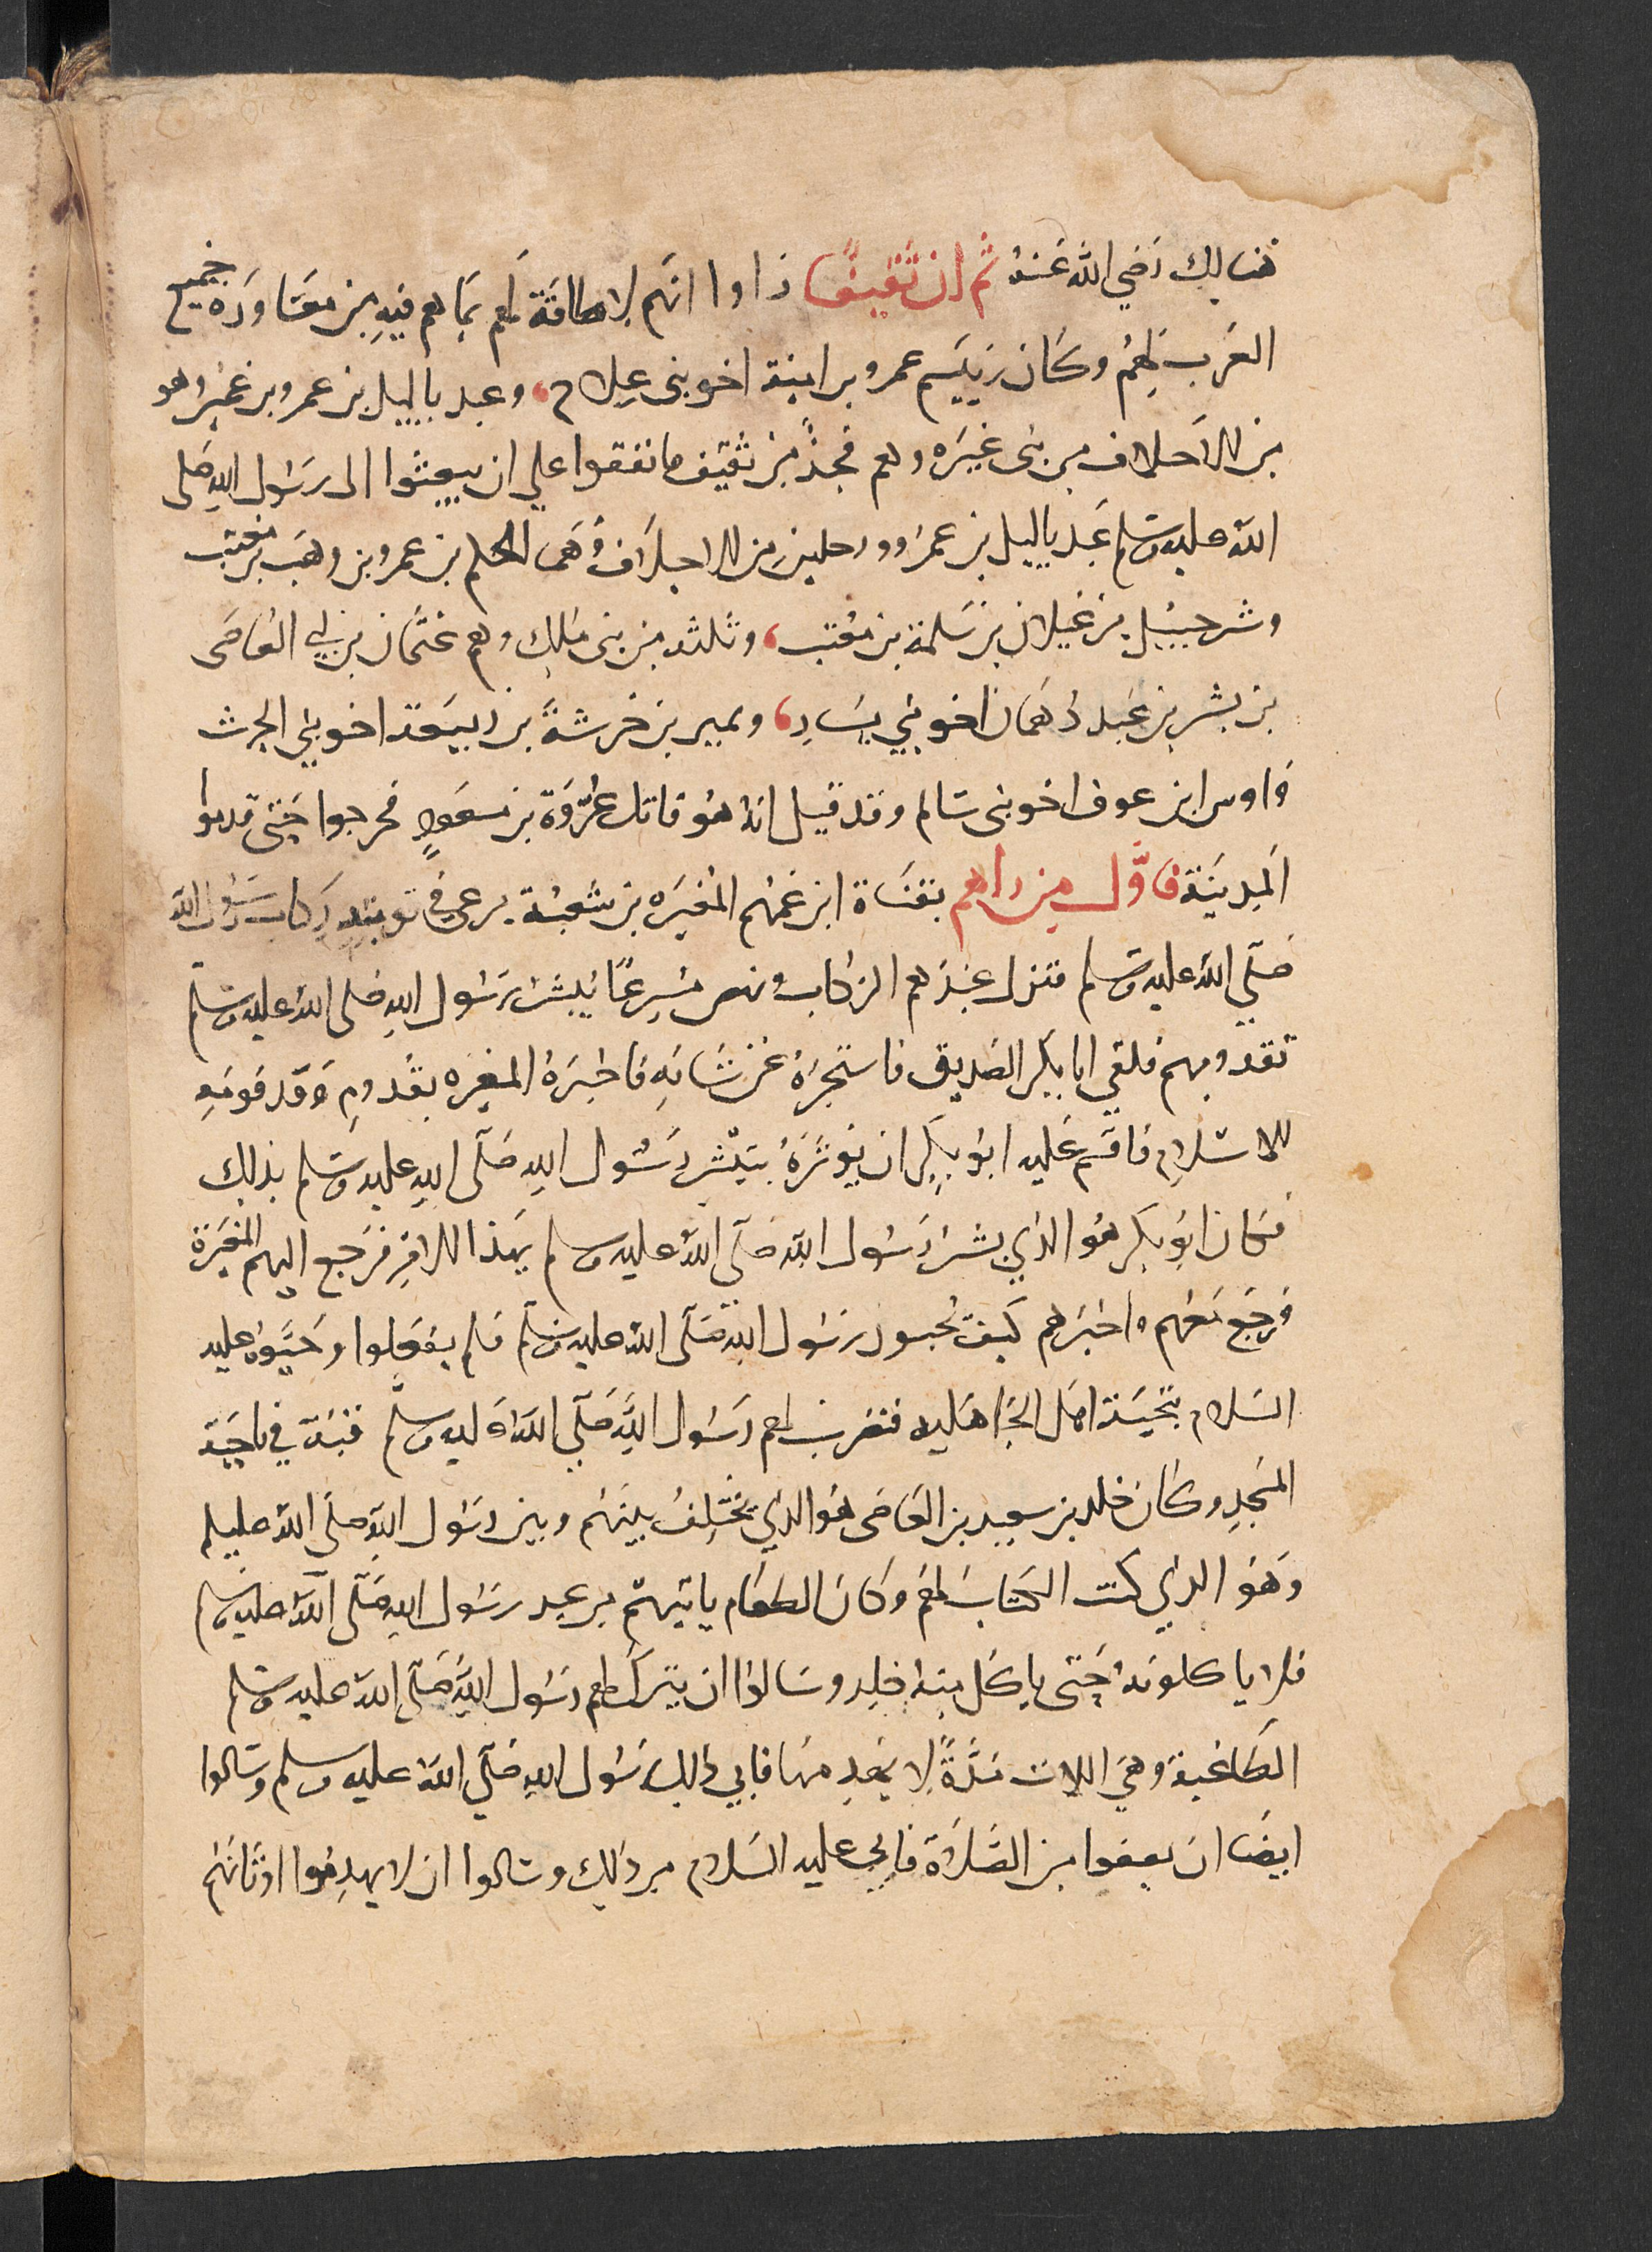 هنالك رضي الله عنه ثم ان ثقيفا راوا انهم لا طاقة لهم بما هم فيه من مغاورة جميع
العرب لهم وكان رييسهم عمرو بن امية اخو بني علاج، وعبد ياليل بن عمرو بن عمير وهو
من الاحلاف من بني غيره وهم فخذ من ثقيف فاتفقوا علي ان يبعثوا الى رسول الله صلى
الله عليه وسلم عبد ياليل بن عمرو ورجلين من الاحلاف وهما الحكم بن عمرو بن وهب بن معتب
وشرحبيل بن غيلان بن سلمة بن معتب، وثلثه من بني ملك وهم عثمان بن ابي العاصى
بن بشر بن عبد دهمان اخو بني يسار، ونمير بن خرشة بن ربيعة اخو بني الحرث
واوس ابن عوف اخو بني سالم وقد قيل انه هو قاتل عروة بن مسعود فخرجوا حتى قدموا
المدينة فاول من راهم بقناة ابن عمهم المغيره بن شعبة يرعى في نوبته ركاب رسول الله
صلى الله عليه وسلم فنزل عندهم الركاب ونهض مسرعا ليبشر رسول الله صلى الله عليه وسلم
بقدومهم فلقي ابا بكر الصديق فاستخبره عن شانه فاخبره المغيره بقدوم وفد قومه
للاسلام فاقسم عليه ابو بكر ان يوثره بتبشير رسول الله صلى الله عليه وسلم بذلك
فكان ابو بكر هو الذي بشر رسول الله صلى الله عليه وسلم بهذا الامر فرجع اليهم المغيرة
ورجع معهم واخبرهم كيف يحيون رسول الله صلى الله عليه وسلم فلم يفعلوا وحيوه عليه
السلام بتحية اهل الجاهليه فضرب لهم رسول الله صلى الله عليه وسلم قبة في ناحية
المسجد وكان خلد بن سعيد بن العاصى هو الذي يختلف بينهم وبين رسول الله صلى الله عليه وسلم
وهو الذي كتب الكتاب لهم وكان الطعام ياتيهم من عند رسول الله صلى الله عليه وسلم
فلا ياكلونه حتى ياكل منه خلد وسالوا ان يترك لهم رسول الله صلى الله عليه وسلم
الطاغية وهي اللات مدة لا يهدمها فابي ذلك رسول الله صلى الله عليه وسلم وسالوا
ايضا ان يعفوا من الصلاة فابي عليه السلام من ذلك وسالوا ان لا يهدموا اوثانهم